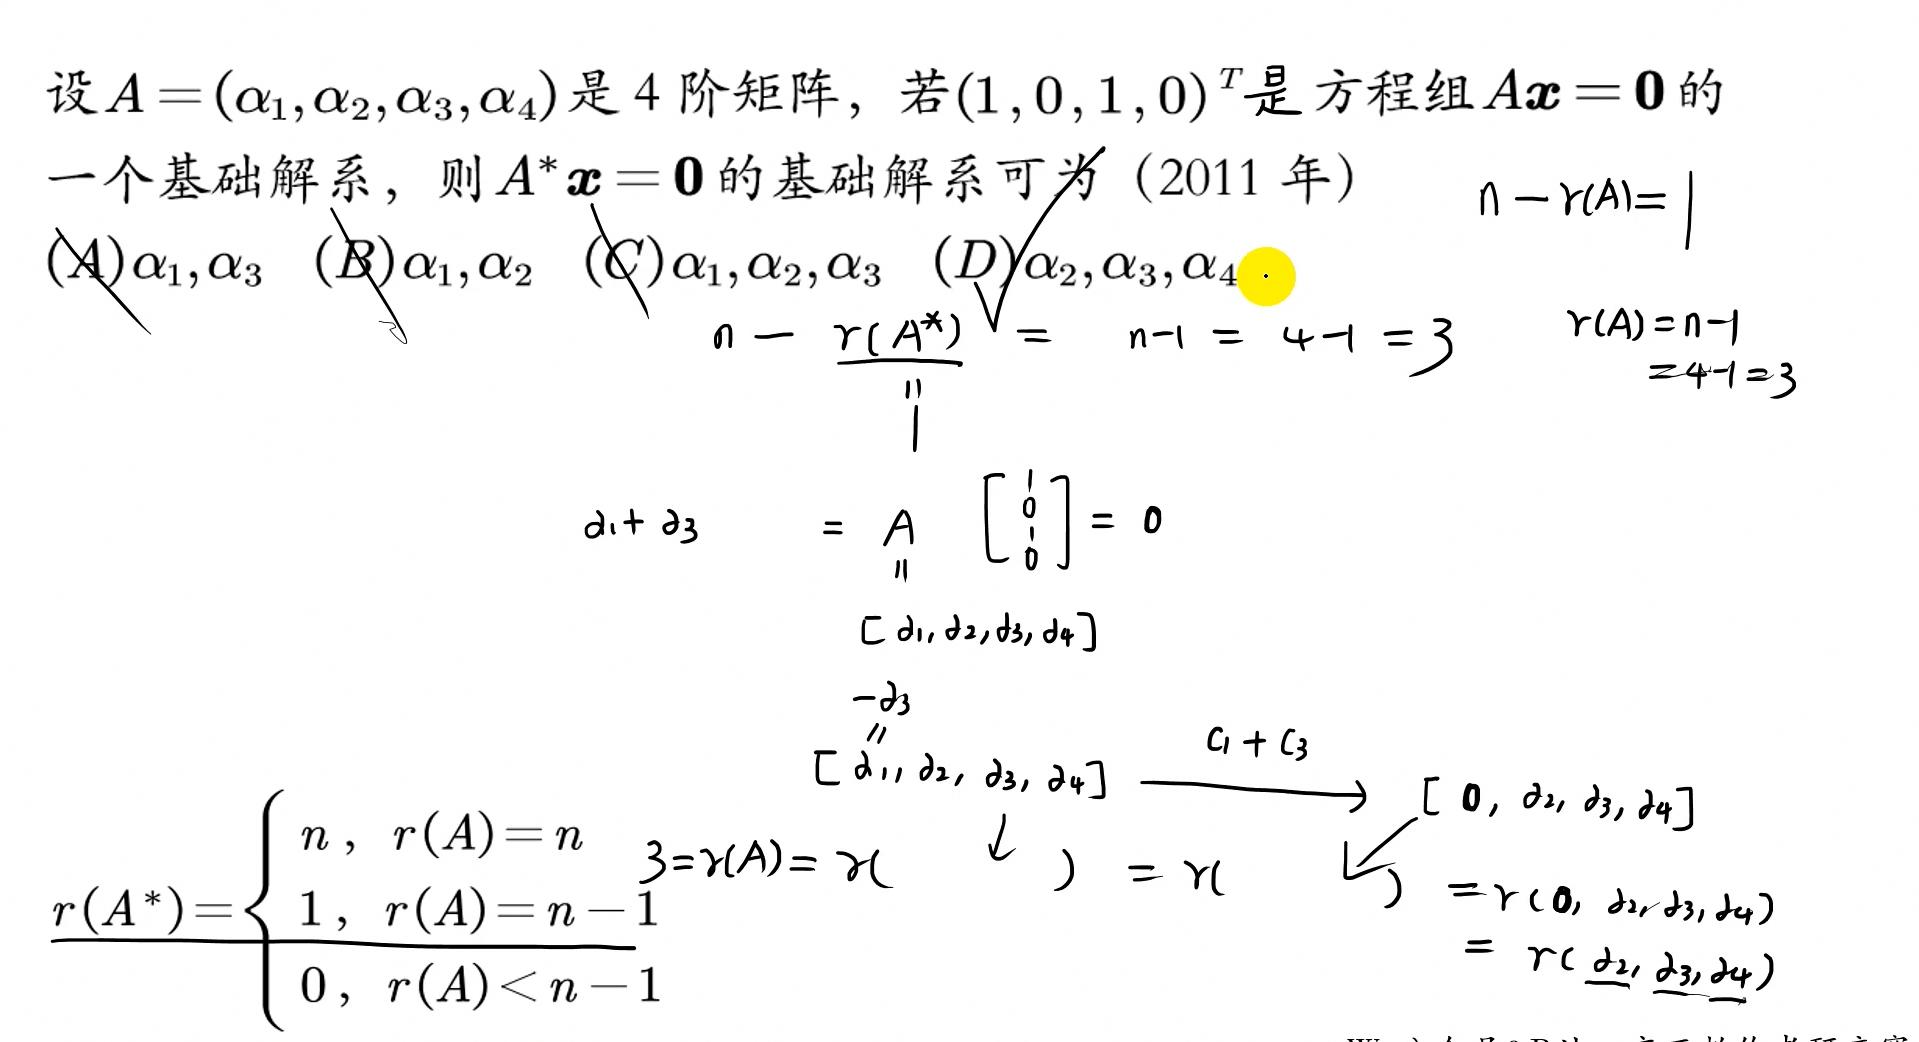 设A=(α₁,α₂,α₃,α₄)是 4 阶矩阵，若(1,0,1,0)ᵀ是方程组Ax=0的
一个基础解系，则A*x=0的基础解系可为（2011 年）
n-r(A)=1
(A)α₁,α₃ (B)α₁,α₂ (C)α₁,α₂,α₃ (D)α₂,α₃,α₄
n-r(A*) = n-1 = 4-1 = 3
r(A)=n-1
=4-1=3
=
1
α₁+α₃ = A [1 0 1 0] = 0
=
[α₁,α₂,α₃,α₄]
-α₃
=
[α₁,α₂,α₃,α₄] → [0,α₂,α₃,α₄]
C₁+C₃
3=r(A)=r( ) = r( ) =r(0,α₂,α₃,α₄)
= r(α₂,α₃,α₄)
r(A*)={ n，r(A)=n
1，r(A)=n-1
0，r(A)<n-1